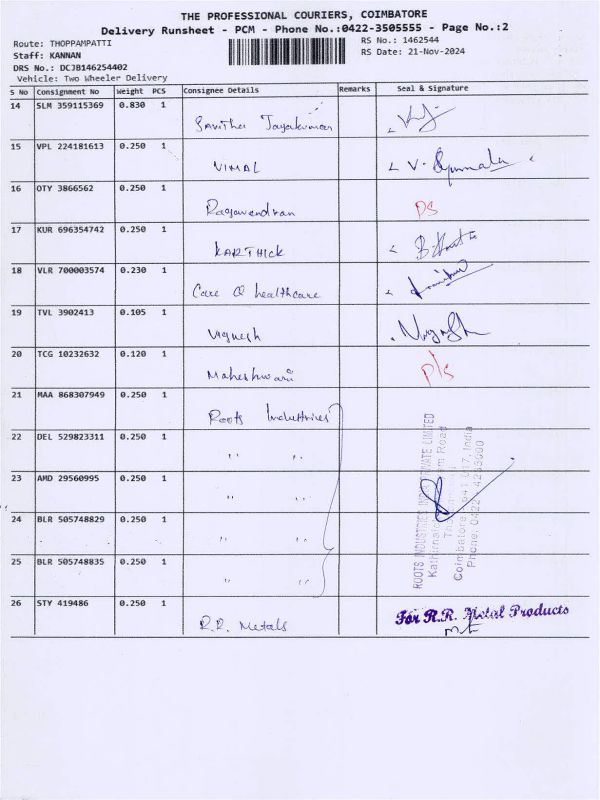 THE PROFESSIONAL COURIERS, COIMBATORE
Delivery Runsheet - PCM - Phone No.:0422-3505555 - Page No.:2
Route: THOPPAMPATTI RS No.: 1462544
Staff: KANNAN RS Date: 21-Nov-2024
DRS No.: DCJB146254402
Vehicle: Two Wheeler Delivery
S No Consignment No Weight PCS Consignee Details Remarks Seal & Signature
14 SLM 359115369 0.830 1
Savitha Jayakumar
15 VPL 224181613 0.250 1
VIMAL V.
16 OTY 3866562 0.250 1
Ragavendran PS
17 KUR 696354742 0.250 1
KARTHICK
18 VLR 700003574 0.230 1
Care @ healthcare
19 TVL 3902413 0.105 1
Vignesh
20 TCG 10232632 0.120 1
Maheshwari P/s
21 MAA 868307949 0.250 1
Roots Industries
22 DEL 529823311 0.250 1
" "
23 AMD 29560995 0.250 1
" "
24 BLR 505748829 0.250 1
" "
25 BLR 505748835 0.250 1
" "
ROOTS INDUSTRIES INDIA PRIVATE LIMITED
Road
Coimbatore - 641 017, India
Phone: 0422
26 STY 419486 0.250 1
R.R. Metals
For R.R. Metal Products